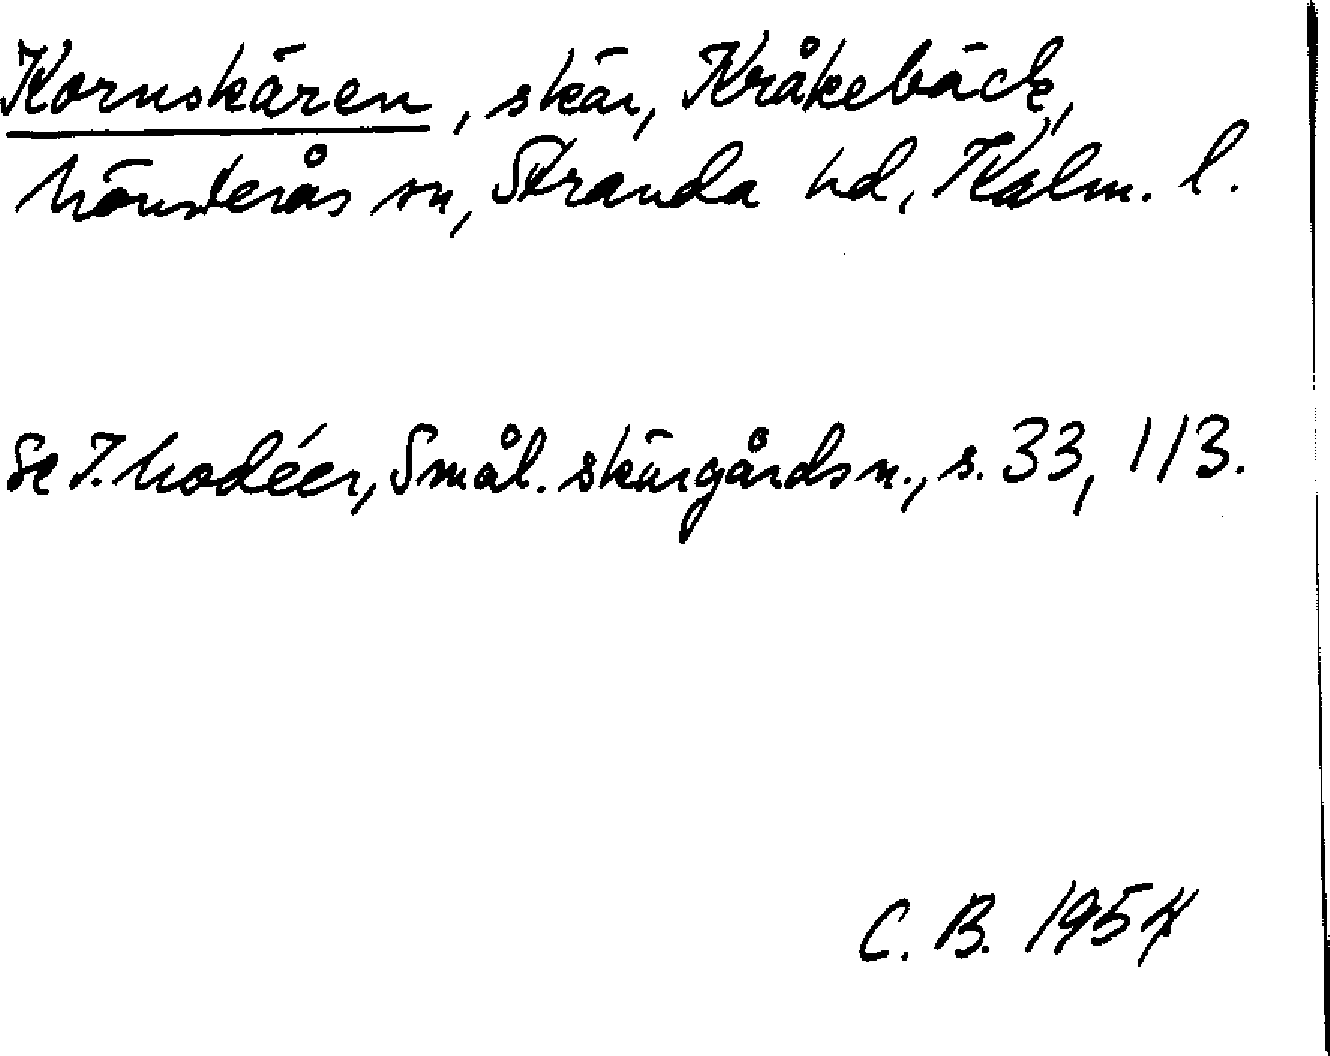 Kornskären, skär, Kråkebäck,
Mönsterås sn, Stranda hd, Kalm. l.
Se I. Modéer, Smål. skärgårdsn., s. 33, 113.
C. B. 1954